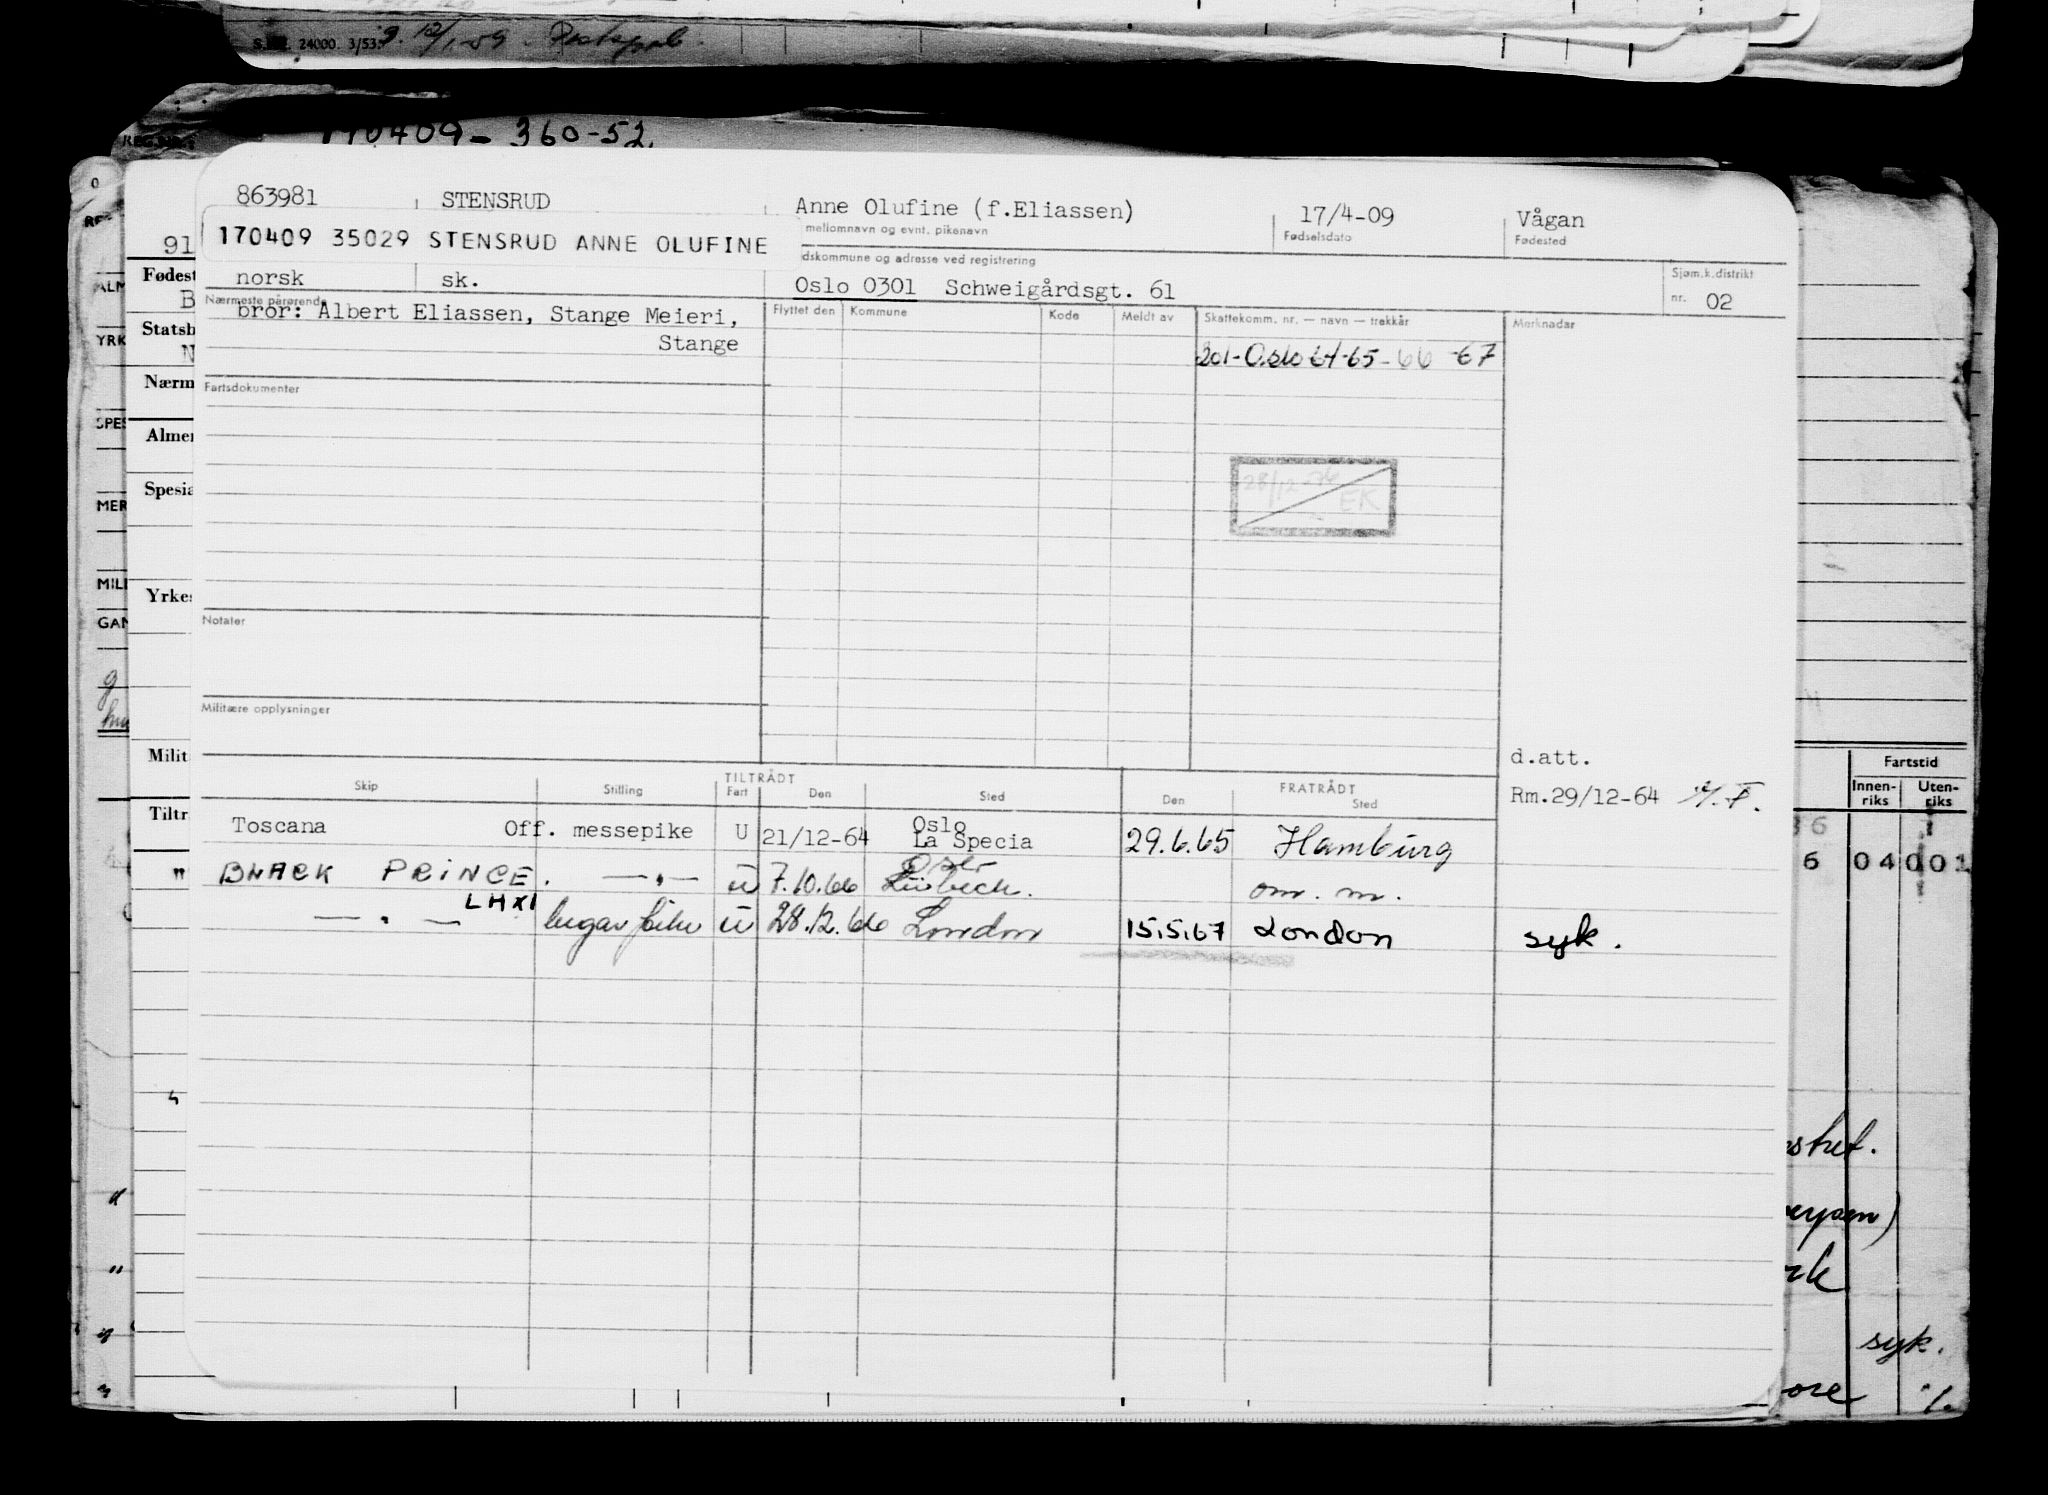 S.&L. 24000. 3/53.
170409-360-52
863981 STENSRUD Anne Olufine (f.Eliassen) 17/4-09 Vågan
170409 35029 STENSRUD ANNE OLUFINE mellomnavn og evnt. pikenavn Fødselsdato Fødested
dskommune og adresse ved registrering Sjøm.k.distrikt
norsk sk. Oslo 0301 Schweigårdsgt. 61 nr. 02
Nærmeste pårørende Flyttet den Kommune Kode Meldt av Skattekomm. nr. — navn — trekkår Merknader
bror: Albert Eliassen, Stange Meieri,
Stange
301-Oslo 64-65-66-67
Fartsdokumenter
28/12-76
EK
Notater
Militære opplysninger
d.att.
TILTRÅDT FRATRÅDT
Skip Stilling Fart Den Sted Den Sted
Rm.29/12-64
Toscana Off. messepike U 21/12-64 Oslo
La Specia
29.6.65 Hamburg
BLACK PRINCE. —„— u 7.10.66 Lübeck. om. m.
LHXI
—„— lugarpike u 28.12.66 London 15.5.67 London syk.
91
Fødest
B
Statsb
N
Nærm
Almen
Spesia
Yrkes
Milit
Tiltr
YRK
SPES
MER
MILI
GAN
Fartstid
Innen-
riks
Uten-
riks
6 04 001
syk.